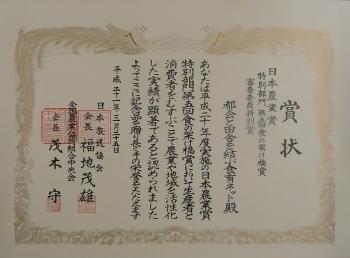 賞状
日本農業賞
特別部門 第五回食の架け橋賞
審査委員特別賞
都会と田舎を結ぶ食育ネット殿
あなたは平成二十年度実施の日本農業賞
特別部門第五回食の架け橋賞において生産者と
消費者をむすぶことで農業や地域を活性化
した実績が顕著であると認められました
よってここに記念品を贈り長くその栄誉をたたえます
平成二十一年三月二十五日
日本放送協会
会長 福地茂雄
全国農業協同組合中央会
会長 茂木守